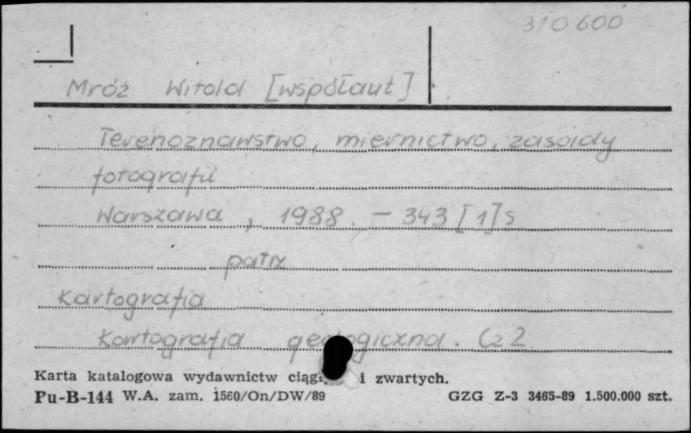 310600
Mróz Witold [współaut]
Terenoznawstwo, miernictwo, zasady
fotografii
Warszawa, 1988. - 343 [1] s
patrz
Kartografia
Kartografia geologiczna. Cz 2
Karta katalogowa wydawnictw i zwartych.
Pu-B-144 W.A. zam. 1560/On/DW/89 GZG Z-3 3465-89 1.500.000 szt.